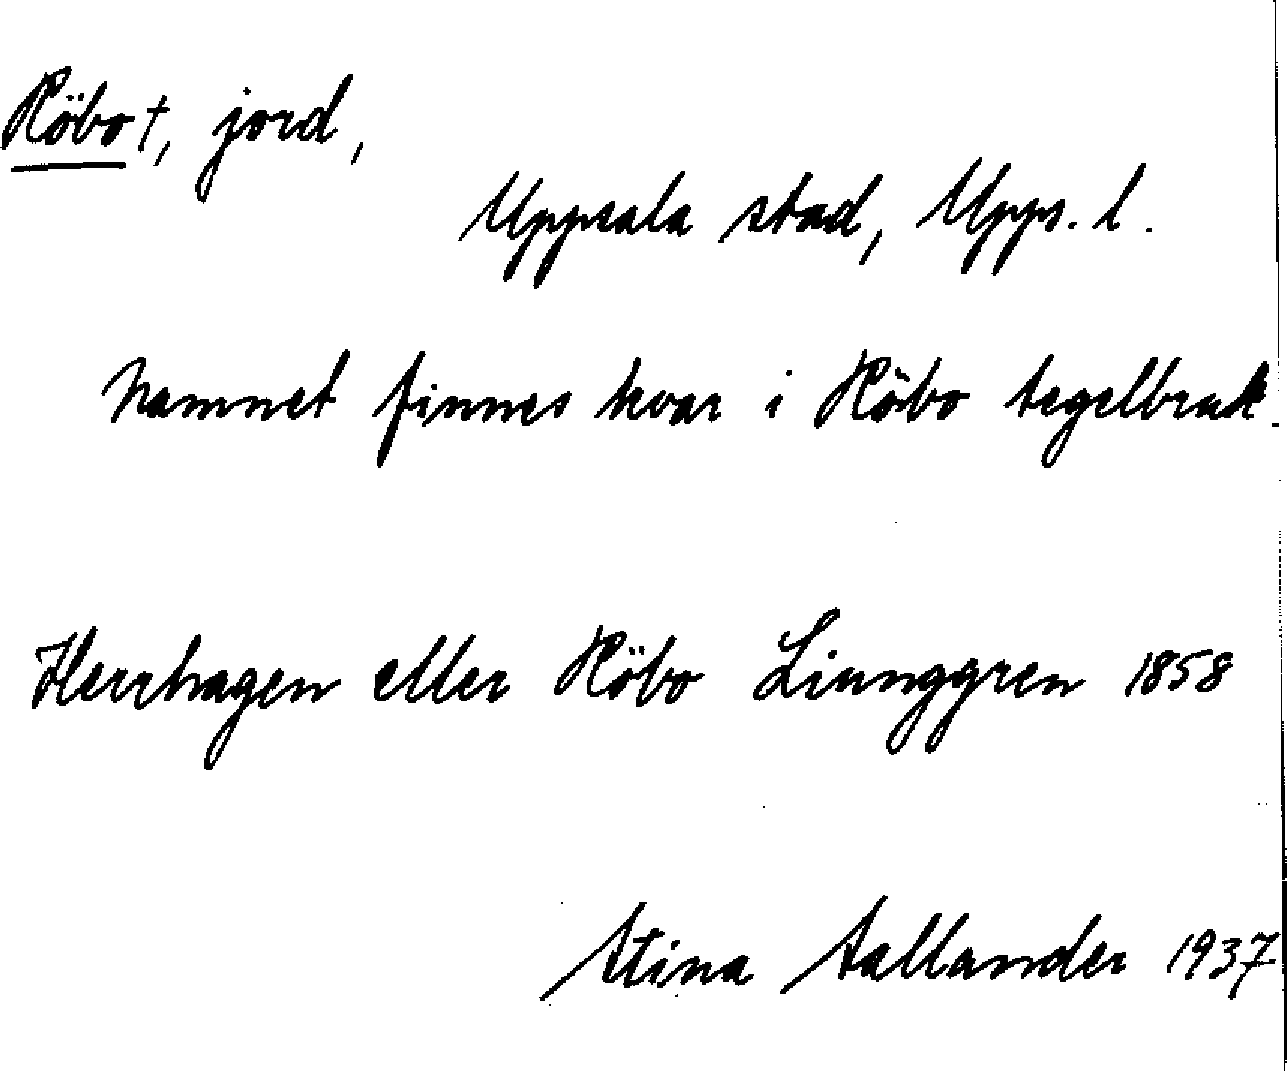 Röbo†, jord,
Uppsala stad, Upps. l.
Namnet finnes kvar i Röbo tegelbruk.
Herrhagen eller Röbo Liunggren 1858
Stina Sallander 1937